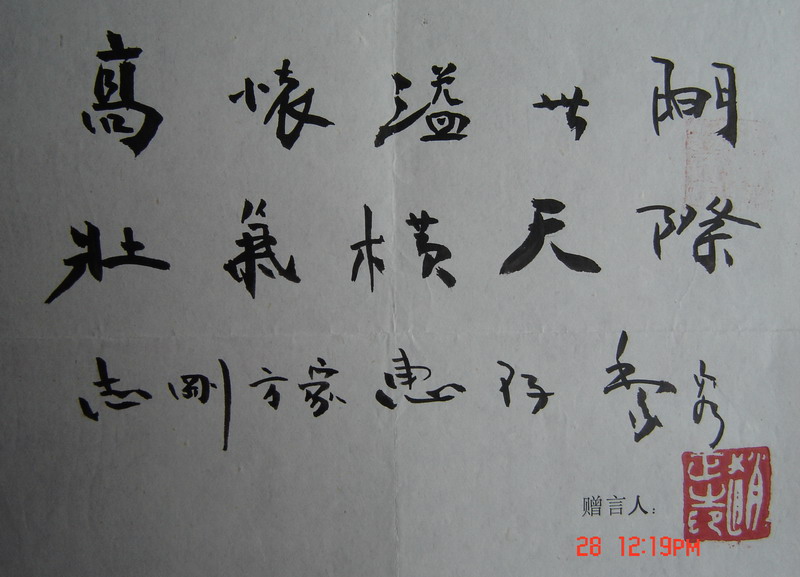 高懷溢世間
壯氣橫天際
志剛方家惠存
赠言人:
28 12:19PM